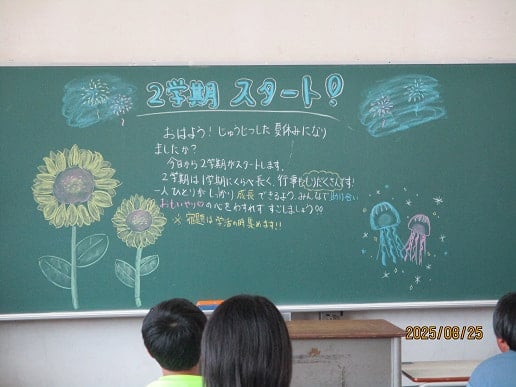 2学期 スタート!
おはよう!じゅうじつした夏休みになり
ましたか?
今日から2学期がスタートします。
2学期は1学期にくらべ長く、行事もたくさんです!
一人ひとりがしっかり成長できるよう、みんなで助け合い
おもいやり♡の心をわすれずすごしましょう♡♡
※宿題は学活の時集めます!!
2025/08/25